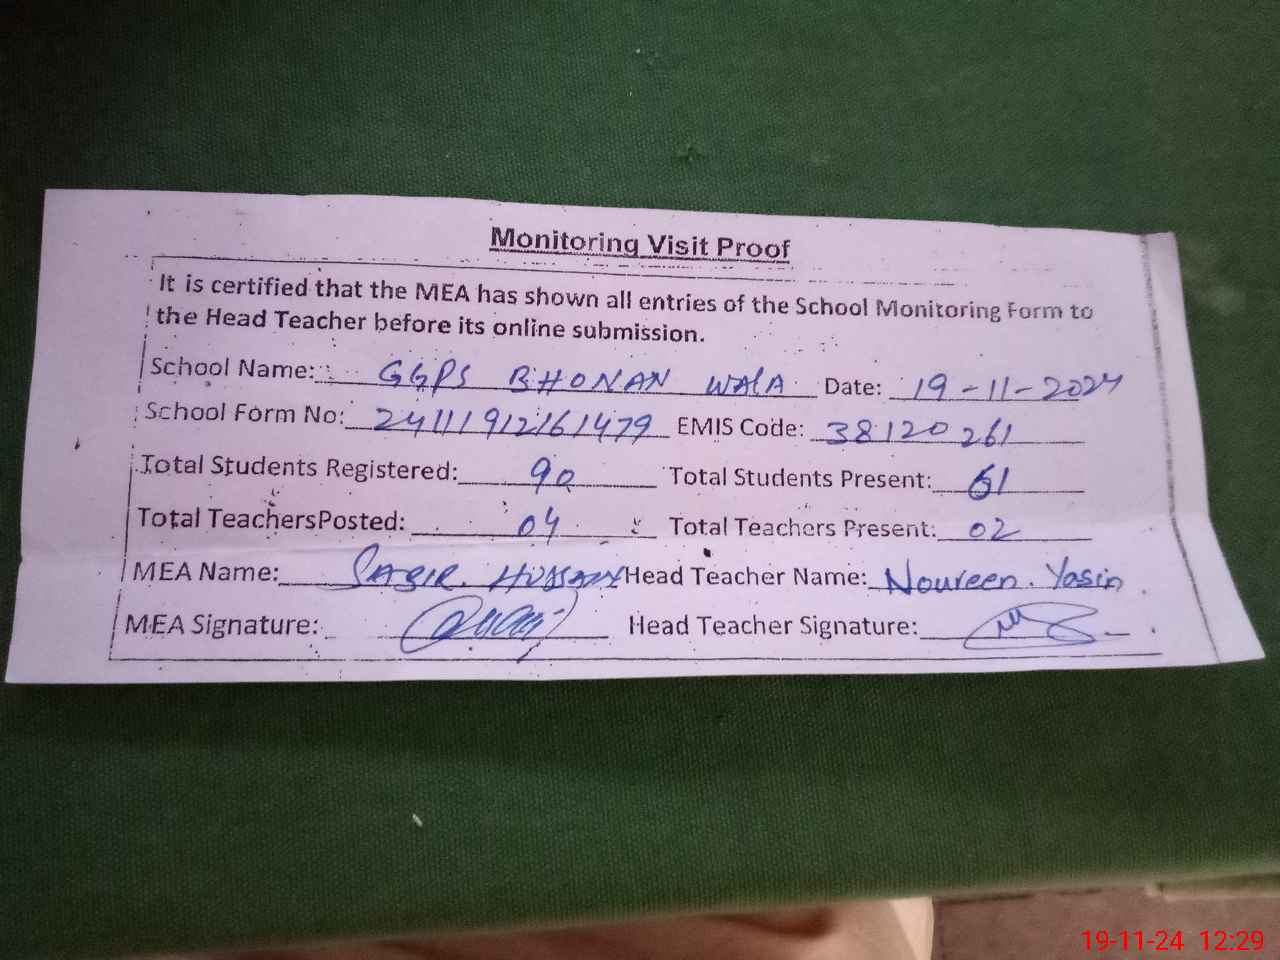 Monitoring Visit Proof
It is certified that the MEA has shown all entries of the School Monitoring Form to
the Head Teacher before its online submission.
School Name: GGPS BHONAN WALA Date: 19-11-2024
School Form No: 24111912161479 EMIS Code: 38120261
Total Students Registered: 90 Total Students Present: 61
Total TeachersPosted: 04 Total Teachers Present: 02
MEA Name: SABIR. HUSSAIN Head Teacher Name: Noureen. Yasin
MEA Signature: Head Teacher Signature:
19-11-24 12:29